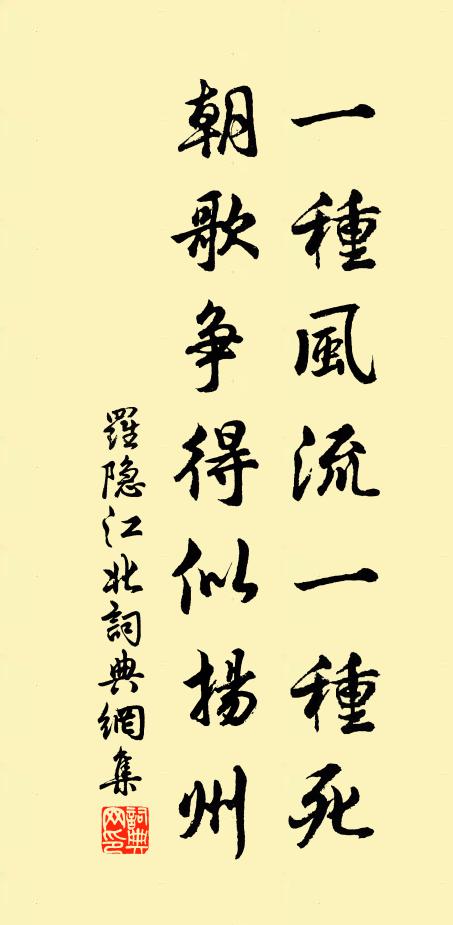 一種風流一種死
朝歌争得似揚州
羅隐江北詞典網集
詞典
网印